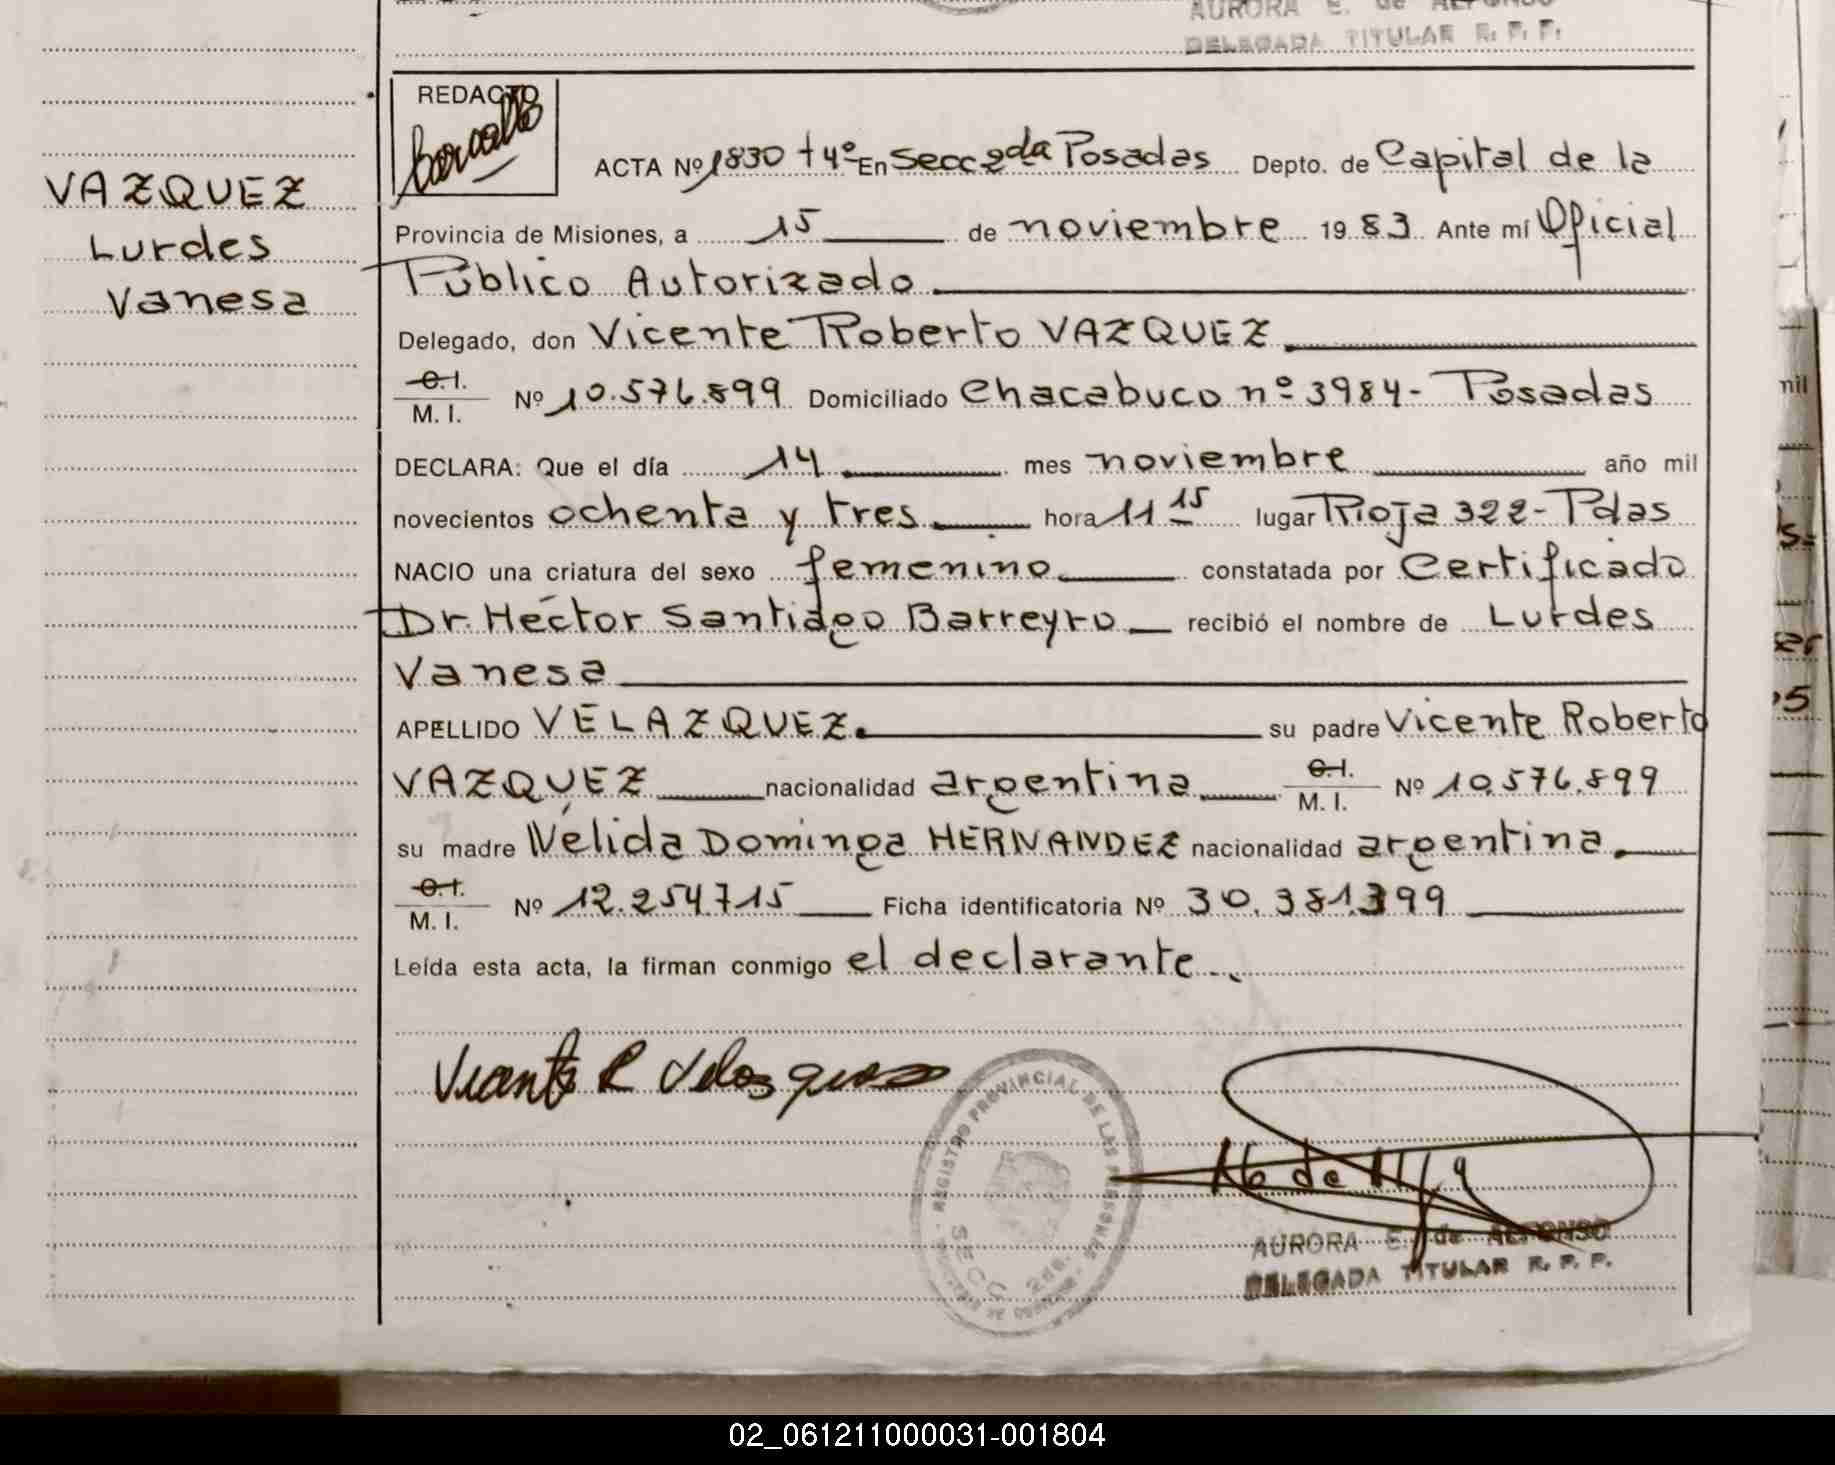 AURORA E. de ALFONSO
DELEGADA TITULAR R. P. P.
REDACTO
ACTA Nº 1830 t 4º En Secc 2da Posadas Depto. de Capital de la
VAZQUEZ
Lurdes
Vanesa
Provincia de Misiones, a 15 de noviembre 1983 Ante mí Oficial
Público Autorizado
Delegado, don Vicente Roberto VAZQUEZ
C.I.
M. I. Nº 10.576.899 Domiciliado Chacabuco nº 3984- Posadas
DECLARA: Que el día 14 mes noviembre año mil
novecientos ochenta y tres hora 11 15 lugar Rioja 322- Pdas
NACIO una criatura del sexo femenino constatada por Certificado
Dr. Héctor Santiago Barreyro recibió el nombre de Lurdes
Vanesa
APELLIDO VELAZQUEZ. su padre Vicente Roberto
VAZQUEZ nacionalidad argentina C.I.
M. I. Nº 10.576.899
su madre Nélida Dominga HERNANDEZ nacionalidad argentina.
C.I.
M. I. Nº 12.254.715 Ficha identificatoria Nº 30.381.399
Leída esta acta, la firman conmigo el declarante.
Vicente R Velazquez
REGISTRO PROVINCIAL DE LAS PERSONAS
SECC 2da.
AURORA E. de ALFONSO
DELEGADA TITULAR R. P. P.
mil
02_061211000031-001804